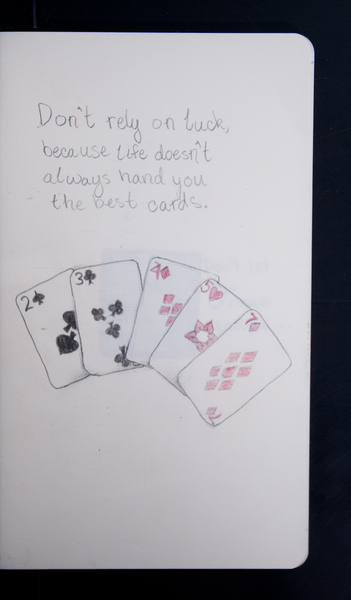 Don't rely on luck,
because life doesn't
always hand you
the best cards.
2 3 4 5 7
7